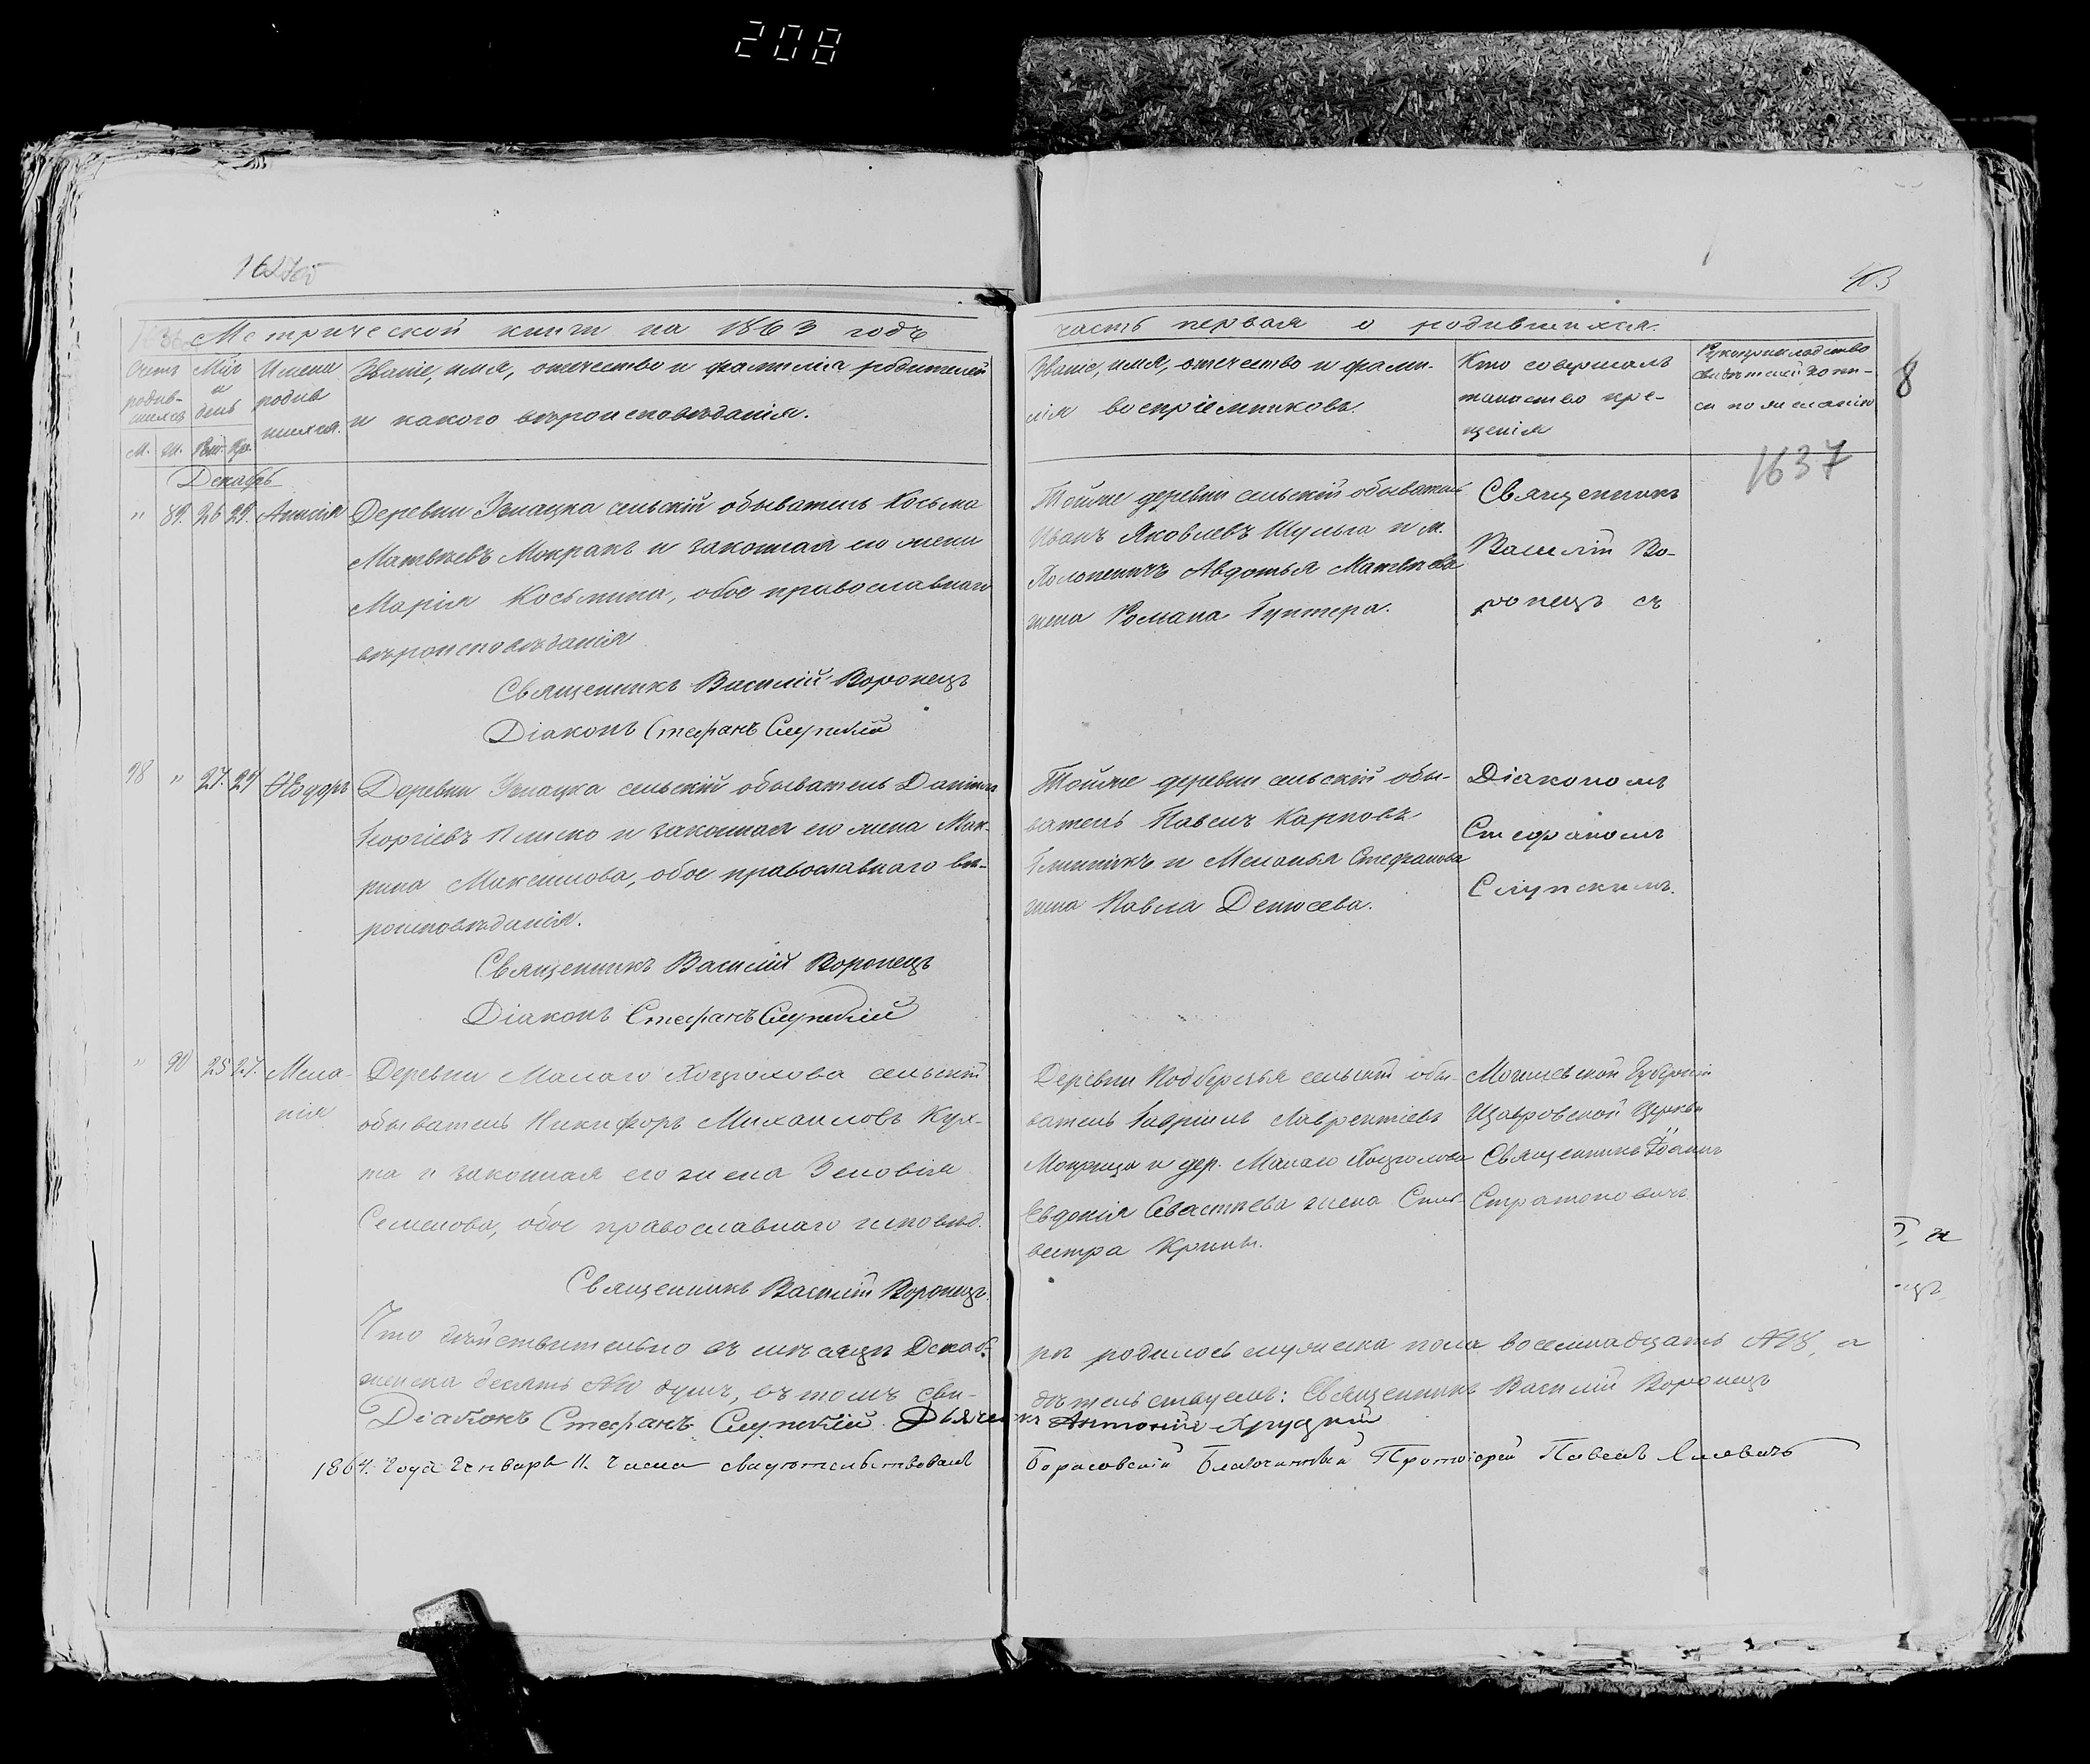 208
403
Метрической книги на 1863 годъ
часть первая о родившихся.
Счетъ родив-шихся
М. Ж.
Мцъ и день
Рож. Кр.
Имена родив шихся.
Званіе, имя, отечество и фамилія родителей
и какого вѣроисповѣданія.
Званіе, имя, отечество и фами-
лія воспріемниковъ.
Кто совершалъ
таинство кре-
щенія
Рукоприкладство
свидѣтелей запи-
си по желанію
8
1637
Декабрь
" 89. 26 29. Анисія
Деревни Гнацка сельскій обыватель Косьма
Матвѣевъ Мокракъ и законная его жена
Марія Косьмина, обое православнаго
вѣроисповѣданія
Священникъ Василій Воронецъ
Діаконъ Стефанъ Слупскій
Тойже деревни сельскій обыватель
Иванъ Яковлевъ Шульга и м.
Авдотья Матвѣева
жена Романа Гунтера.
Священникъ
Василій Во-
ронецъ съ
98 " 27. 29 Ѳеодоръ
Деревни Гнацка сельскій обыватель Даніилъ
Георгіевъ и законная его жена Мак-
рина Максимова, обое православнаго вѣ-
роисповѣданія.
Священникъ Василій Воронецъ
Діаконъ Стефанъ Слупскій
Тойже деревни сельскій обы-
ватель Павелъ Карповъ
и Меланья Стефанова
жена Павла Денисева.
Діакономъ
Стефаномъ
Слупскимъ.
" 90 25 27. Мела-
нія
Деревни Малаго Хоцюхова сельскій
обыватель Никифоръ Михаиловъ Кух-
та и законная его жена Зеновія
Семенова, обое православнаго исповѣд.
Священникъ Василій Воронецъ.
Деревни Подберезья сельскій обы-
ватель Гавріилъ Лаврентіевъ
и дер. Малаго Хоцюхова
Евдокія Севастіева жена Силь-
вестра Крины.
Могилевской Губерніи
Церкви
Священникъ Іоаннъ
Стратоновичъ
Что дѣйствительно въ мѣсяцѣ Декаб-
рѣ родилось мужеска пола восемнадцать №18, а
женска десять №10 душъ, въ томъ сви-
дѣтельствуемъ: Священникъ Василій Воронецъ
Діаконъ Стефанъ Слупскій. Дьячекъ Антоній Хруцкій
1864. года Генваря 11. числа свидѣтельствовалъ
Борисовскій Благочинный Протоіерей Павелъ